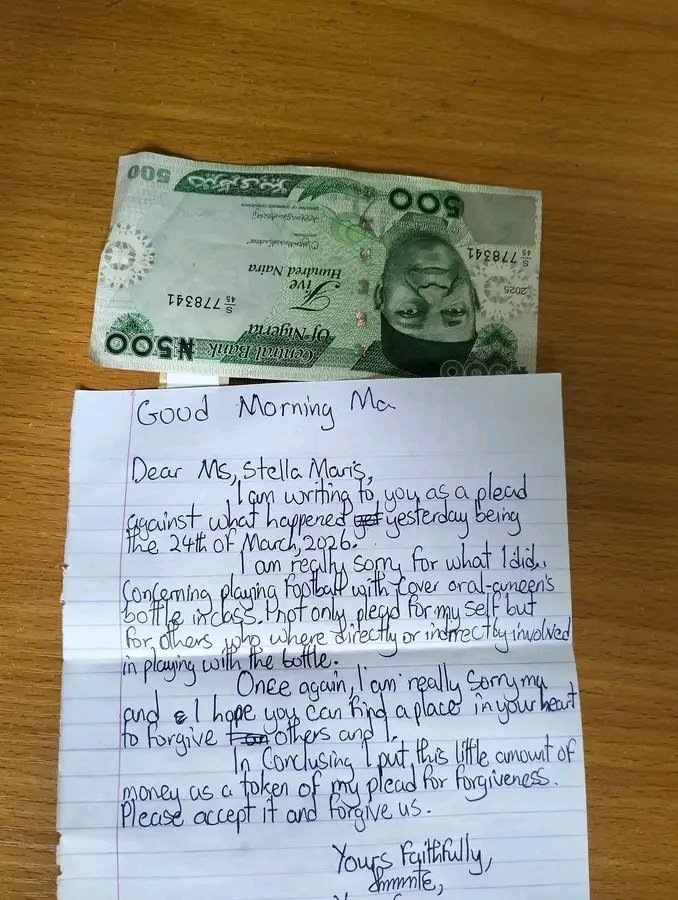 500
500
S/45 778341
2025
Five
Hundred Naira
S/45 778341
Central Bank
Of Nigeria
₦500
Good Morning Ma
Dear Ms, Stella Maris,
I am writing to you as a plead
against what happened yesterday being
the 24th of March, 2026.
I am really sorry for what I did..
Concerning playing football with Cover
bottle in class. I not only plead for my self but
for others who where directly or indirectly involved
in playing with the bottle.
Once again, I am really sorry ma
and I hope you can find a place in your heart
to forgive others and I.
In Conclusing I put this little amount of
money as a token of my plead for forgiveness.
Please accept it and forgive us.
Yours faithfully,